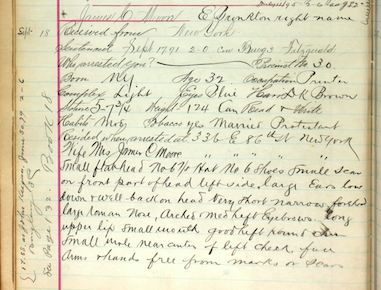 James C Moon E Pronkton right name
Sept 18 Received from New York
Sentenced Sept 17 91 2-0 Burgs Fitzgerald
Who arrested you? Precinct No 30.
Born NY Age 32. Occupation Printer
Complex Light Eyes Blue Hair Dk Brown
Stature 5-7½ Weight 124 Can Read & Write
Habits Mod; Tobacco yes Married Protestant
Resided when arrested at 336 E 86th St New York
Wife Mrs James C Moore " " " "
Small flat head No 6⅞ Hat No 6 Shoes Small scar
on front part of head left side, large Ears low
down & well back on head Very short narrow forehd
large roman Nose, Arched Med heft Eyebrows. long
upper lip Small mouth good teeth round
Small mole near center of left cheek, face
Arms & hands free from marks or scars
See Page 132 Book 18